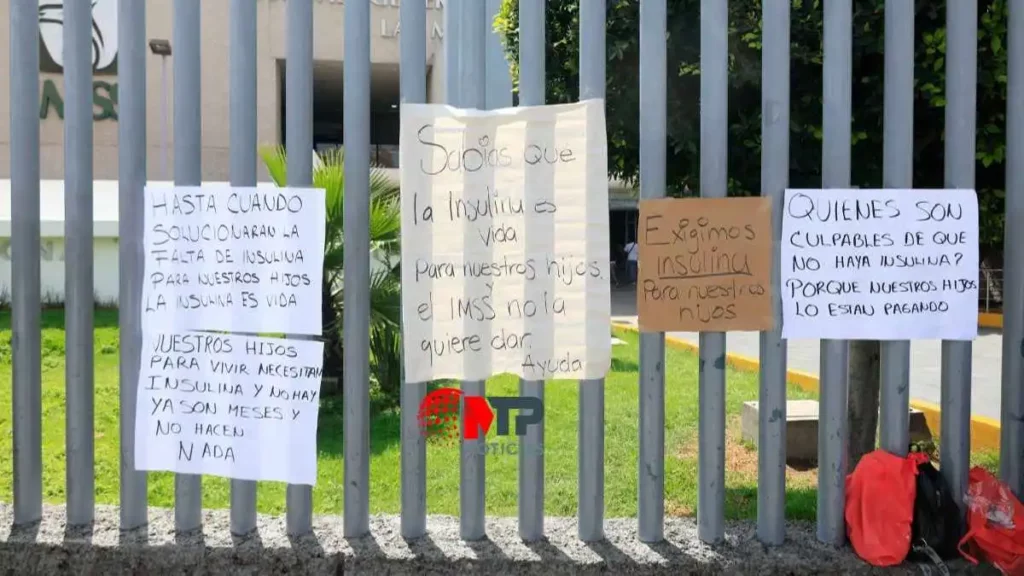 IMSS
LA
HASTA CUANDO
SOLUCIONARAN LA
FALTA DE INSULINA
PARA NUESTROS HIJOS
LA INSULINA ES VIDA
NUESTROS HIJOS
PARA VIVIR NECESITAN
INSULINA Y NO HAY
YA SON MESES Y
NO HACEN
NADA
Sabias que
la Insulina es
vida
para nuestros hijos.
el IMSS no la
quiere dar.
Ayuda
Exigimos
insulina
Para nuestros
hijos
QUIENES SON
CULPABLES DE QUE
NO HAYA INSULINA?
PORQUE NUESTROS HIJOS
LO ESTAN PAGANDO
MTP
NOTICIAS